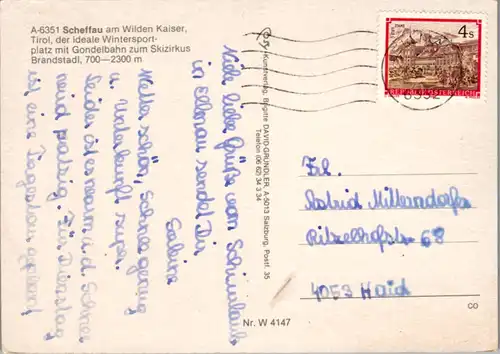 A-6351 Scheffau am Wilden Kaiser,
Tirol, der ideale Wintersport-
platz mit Gondelbahn zum Skizirkus
Brandstadl, 700—2300 m
Viele liebe Grüße vom Schiurlaub
in Ellmau sendet Dir
Sabine
Wetter schön, Schnee genug
u. Unterkunft super.
Leider ist es warm u. d. Schnee
patzig. Für Dienstag
ist eine Tagestour geplant
Kunstverlag Brigitte DAVID-GRÜNDLER, A-5013 Salzburg, Postf. 35
Telefon (06 62) 34 3 34
4 S
REPUBLIK ÖSTERREICH
6352
Frl.
Astrid Millerndorfer
Ritzelhofstr. 68
4053 Haid
CO
Nr. W 4147